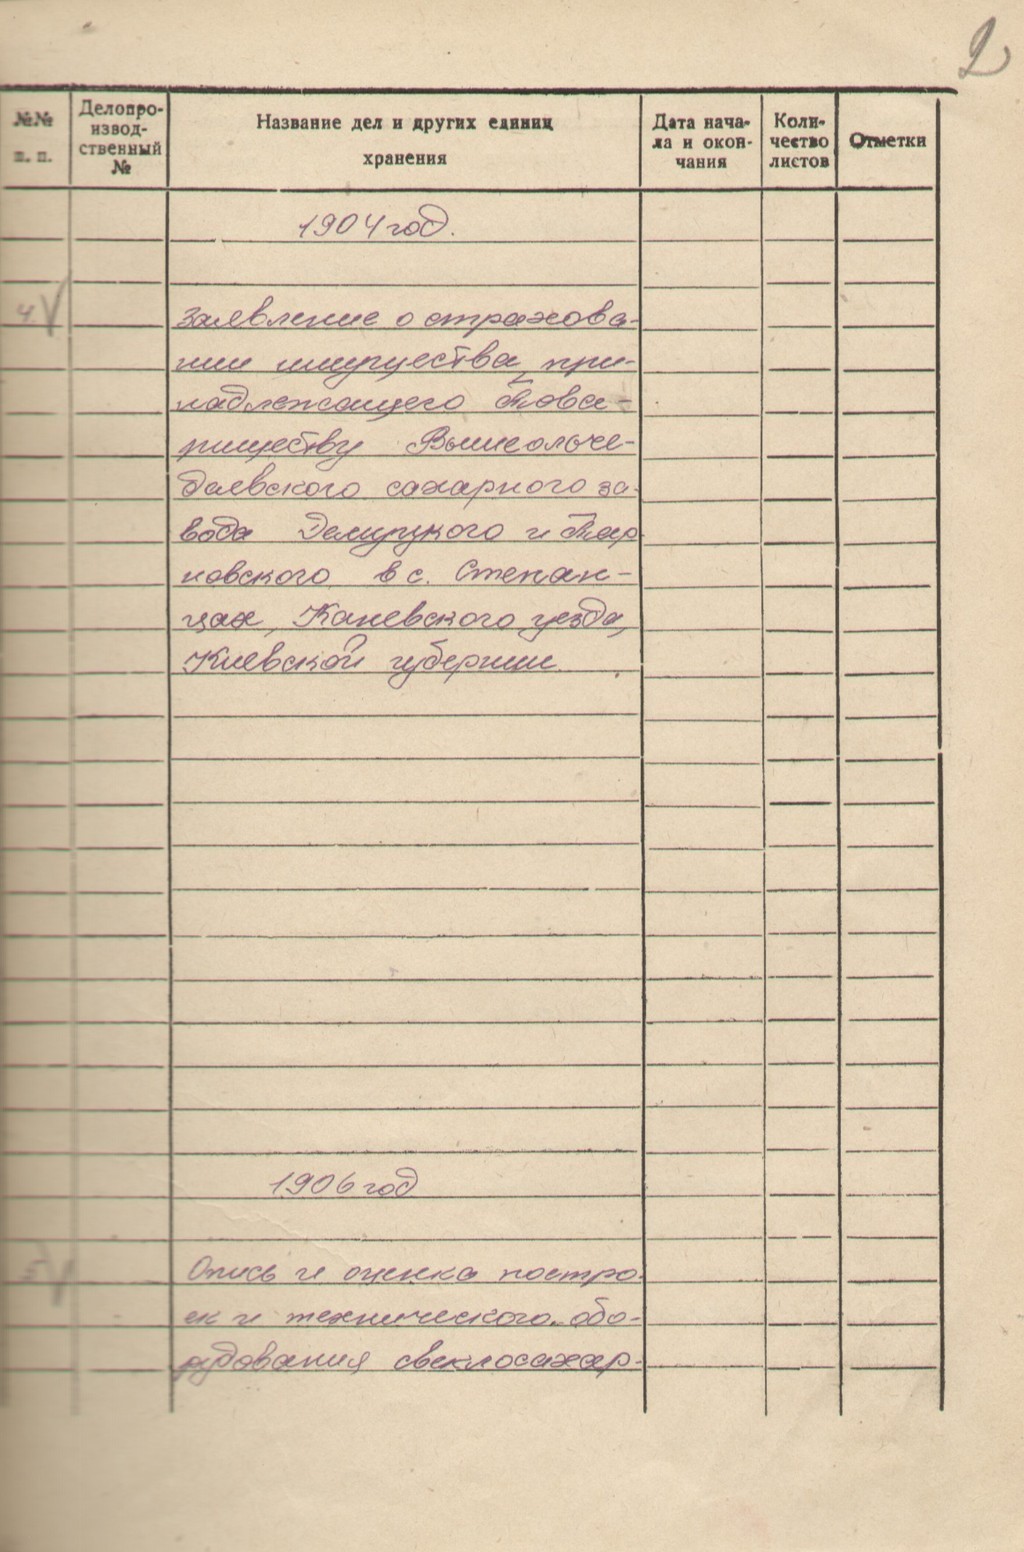 2
№№ п. п.
Делопро-
извод-
ственный
№
Название дел и других единиц
хранения
Дата нача-
ла и окон-
чания
Коли-
чество
листов
Отметки
1904 год.
4 V
Заявление о страхова-
нии имущества, при-
надлежащего Това-
риществу Вышеольче-
даевского сахарного за-
вода Демуцкого и Тар
новского в с. Степан-
цах, Каневского уезда,
Киевской губернии.
1906 год
5 V
Опись и оценка постро-
ек и технического обо-
рудования свеклосахар-